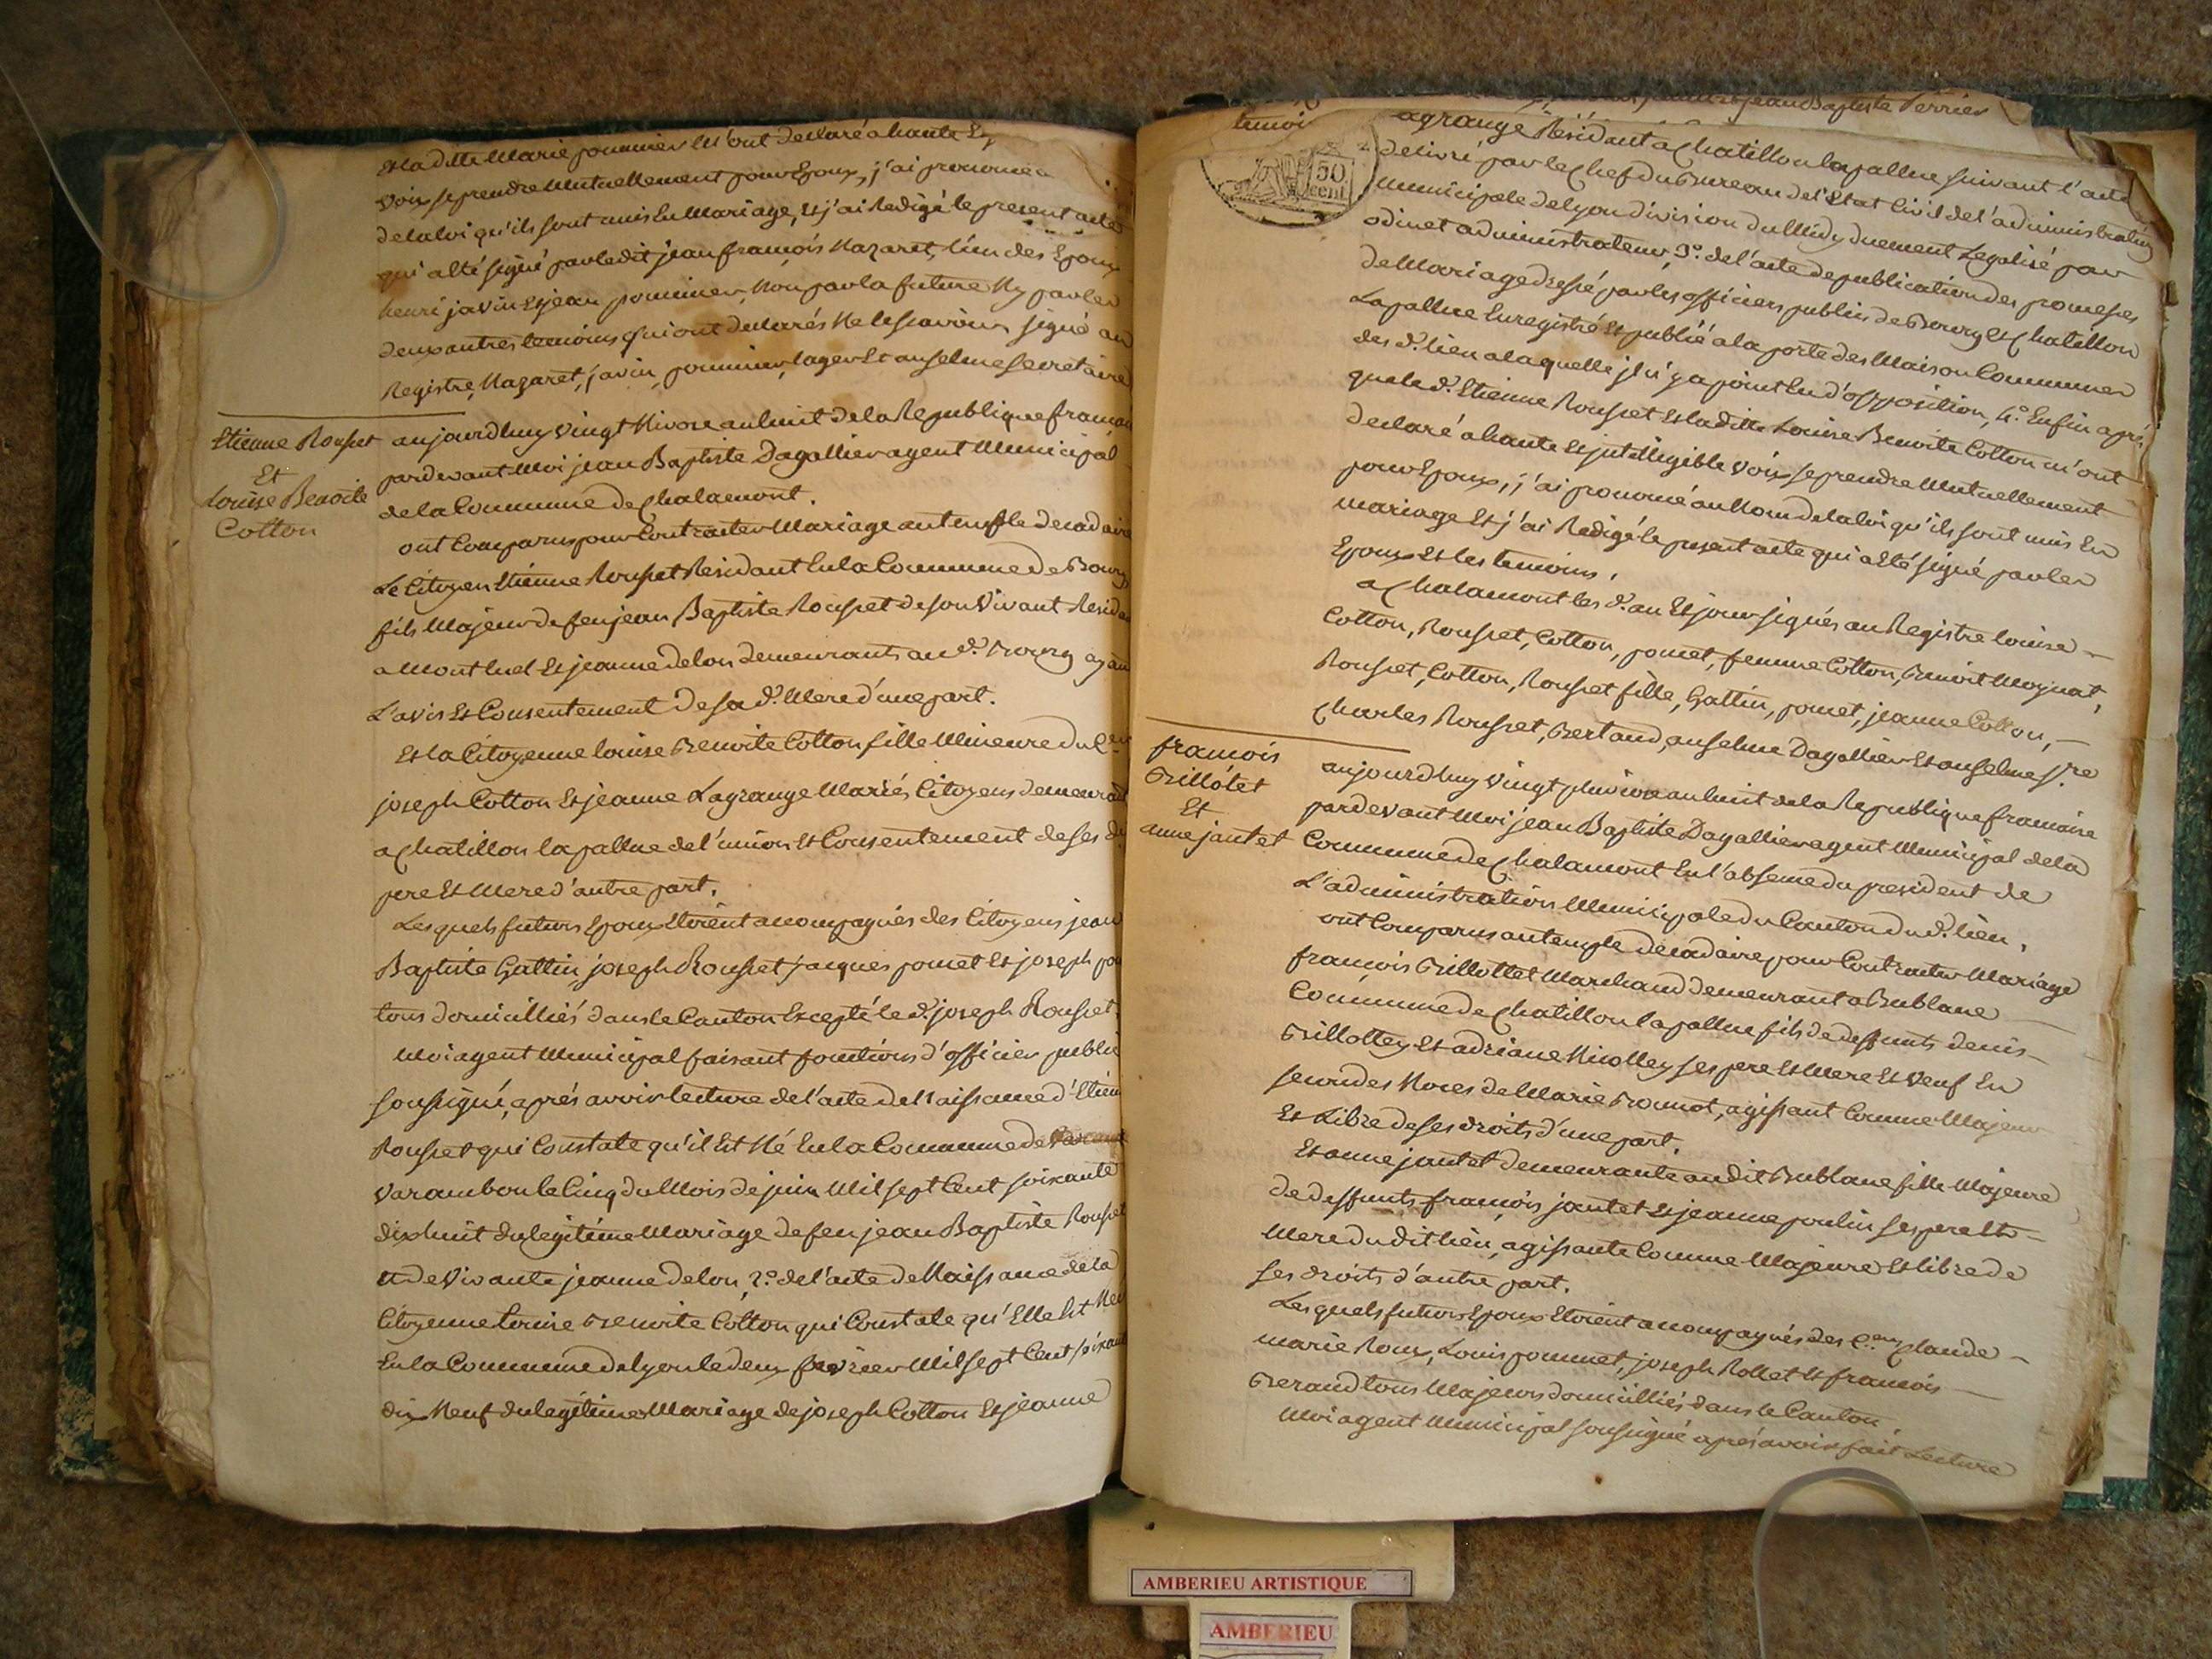 Et laditte Marie pommier M'ont declaré a haute Et
voix se prendre Mutuellement pour Epoux, j'ai prononcé a
de la loi qu'ils sont unis En Mariage, Et j'ai Redigé le present acte
qui a Eté signé par le dit jean françois Nazaret, l'un des Epoux
henri javin Et jean pommier, Non par la future Ny par les
deux autres temoins qui ont declarés Ne le scavoir signé au
Registre, Nazaret, javin, pommier, lager Et anselme secretaire
Etienne Rousset
Et
Louise Benoite
Cotton
aujourdhuy vingt Nivose an huit de la Republique françai
pardevant Moi jean Baptiste Dagallier agent Municipal
de la Commune de Chalamont.
ont Comparus pour Contracter Mariage au temple decadaire
Le Citoyen Etienne Rousset Residant En la Commune de Bourg
fils Majeur de feu jean Baptiste Rousset de son Vivant Resida
a Montluel Et jeanne delon demeurants au d. Bourg ayan
L'avis Et Consentement de sa d. Mere d'une part.
Et la Citoyenne louise Benoite Cotton fille Mineure du Cen
joseph Cotton Et jeanne Lagrange Mariés Citoyens demeurant
a Chatillon la pallue de l'union Et Consentement de ses d.
pere Et Mere d'autre part.
Les quels futurs Epoux Etoient accompagnés des Citoyens jean
Baptiste Gattin, joseph Rousset jacques pomet Et joseph po
tous domicilliés dans le Canton Excepté le d. joseph Rousset
Moi agent Municipal faisant fonctions d'officier public
soussigné, aprés avoir lecture de l'acte de Naissance d'Etien
Rousset qui Constate qu'il Est Né En la Commune de
Varambon le Cinq du Mois de juin Mil sept Cent soixante
dix huit du legitime Mariage de feu jean Baptiste Rousset
Et de Vivante jeanne delon, 2.° de l'acte de Naissance de la
Citoyenne Louise Benoite Cotton qui Constate qu'Elle Est Née
En la Commune de lyon le deux fevrier Mil sept Cent soixant
dix Neuf du legitime Mariage de joseph Cotton Et jeanne
jean Baptiste Perrier
temoi
50
cent
agrange Résidant a Chatillon la pallue suivant l'acte
delivré par le Chef du Bureau de l'Etat Civil de l'administration
Municipale de Lyon division du Midy duement Legalisé par
odinet administrateur, 3.° de l'acte de publication des promesses
de Mariage dressé par les officiers publics de Bourg Et Chatillon
Lapallue Enregistré Et publié a la porte des Maison Communes
des d. lieu a laquelle jl n'y a point Eu d'opposition, 4.° Enfin après
que le d. Etienne Rousset Et laditte Louise Benoite Cotton m'ont
declaré a haute Et jntelligible Voix se prendre Mutuellement
pour Epoux, j'ai prononcé au Nom de la loi qu'ils sont unis En
mariage Et j'ai Redigé le present acte qui a Eté signé par les
Epoux Et les temoins.
a Chalamont les d. an Et jour signés au Registre louise
Cotton, Rousset, Cotton, pomet, femme Cotton, Benoit Moynat,
Rousset, Cotton, Rousset fille, Gattin, pomet, jeanne Cotton,
Charles Rousset, Bertand, anselme Dagallier Et anselme sre
françois
Brillotet
Et
anne jantet
aujourdhuy vingt pluviose an huit de la Republique francaise
pardevant Moi jean Baptiste Dagallier agent Municipal de la
Commune de Chalamont En l'absence du president de
L'administration Municipale du Canton du d. lieu.
ont Comparus au temple decadaire pour Contracter Mariage
francois Brillottet Marchand demeurant a Bublane
Commune de Chatillon la pallue fils de deffunts denis
Brillottey Et adriane Nicolley ses pere Et Mere Et Veuf En
secondes Noces de Marie Bonnot, agissant Comme Majeur
Et Libre de ses droits d'une part.
Et anne jantet demeurante audit Bublane fille Majeure
de deffunts françois jantet Et jeanne poulin ses pere Et
Mere du dit lieu, agissante Comme Majeure Et libre de
ses droits d'autre part.
Les quels futurs Epoux Etoient accompagnés des C.ens Claude
marie Roux, Louis pommet, joseph Rollet Et francois
Berand tous Majeurs domicilliés dans le Canton
Moi agent Municipal soussigné aprés avoir fait Lecture
AMBERIEU ARTISTIQUE
AMBERIEU